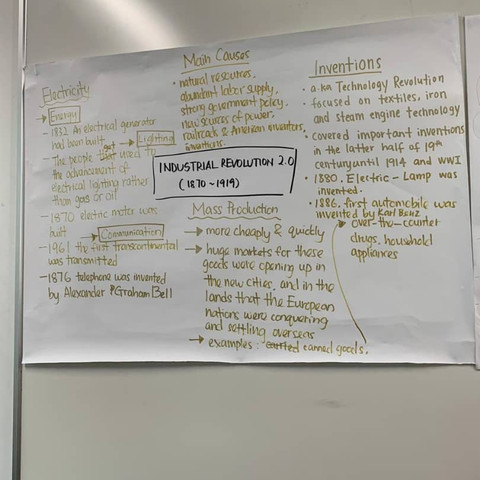 Main Causes
• natural resources,
abundant labor supply,
strong government policy,
new sources of power,
railroads & American inventors,
inventions.
Electricity
→ Energy
- 1832 An electrical generator
had been built
→ Lighting
- The people that got used to
the advancement of
electrical lighting rather
than gas or oil
- 1870 electric motor was
built
→ Communication
- 1961 the first transcontinental
was transmitted
- 1876 telephone was invented
by Alexander Graham Bell
INDUSTRIAL REVOLUTION 2.0
(1870 - 1914)
Mass Production
→ more cheaply & quickly
→ huge markets for these
goods were opening up in
the new cities, and in the
lands that the European
nations were conquering
and settling overseas
→ examples: canned goods,
over-the-counter
drugs, household
appliances
Inventions
• a.k.a Technology Revolution
• focused on textiles, iron
and steam engine technology
• covered important inventions
in the latter half of 19th
century until 1914 and WWI
• 1880, Electric-Lamp was
invented.
• 1886, first automobile was
invented by Karl Benz